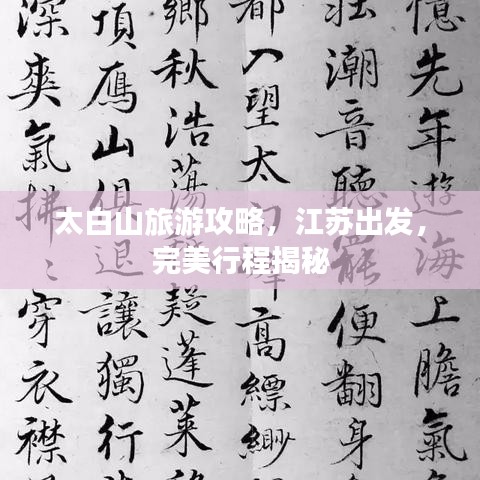 太白山旅游攻略，江苏出发，
完美行程揭秘
憶先年遊海上膽氣
壯潮音聽罷便翻身
都入望太高縹緲
鄉秋浩蕩疑蓬萊
頂鴈山俱退讓獨行
深爽氣拂穿衣襟